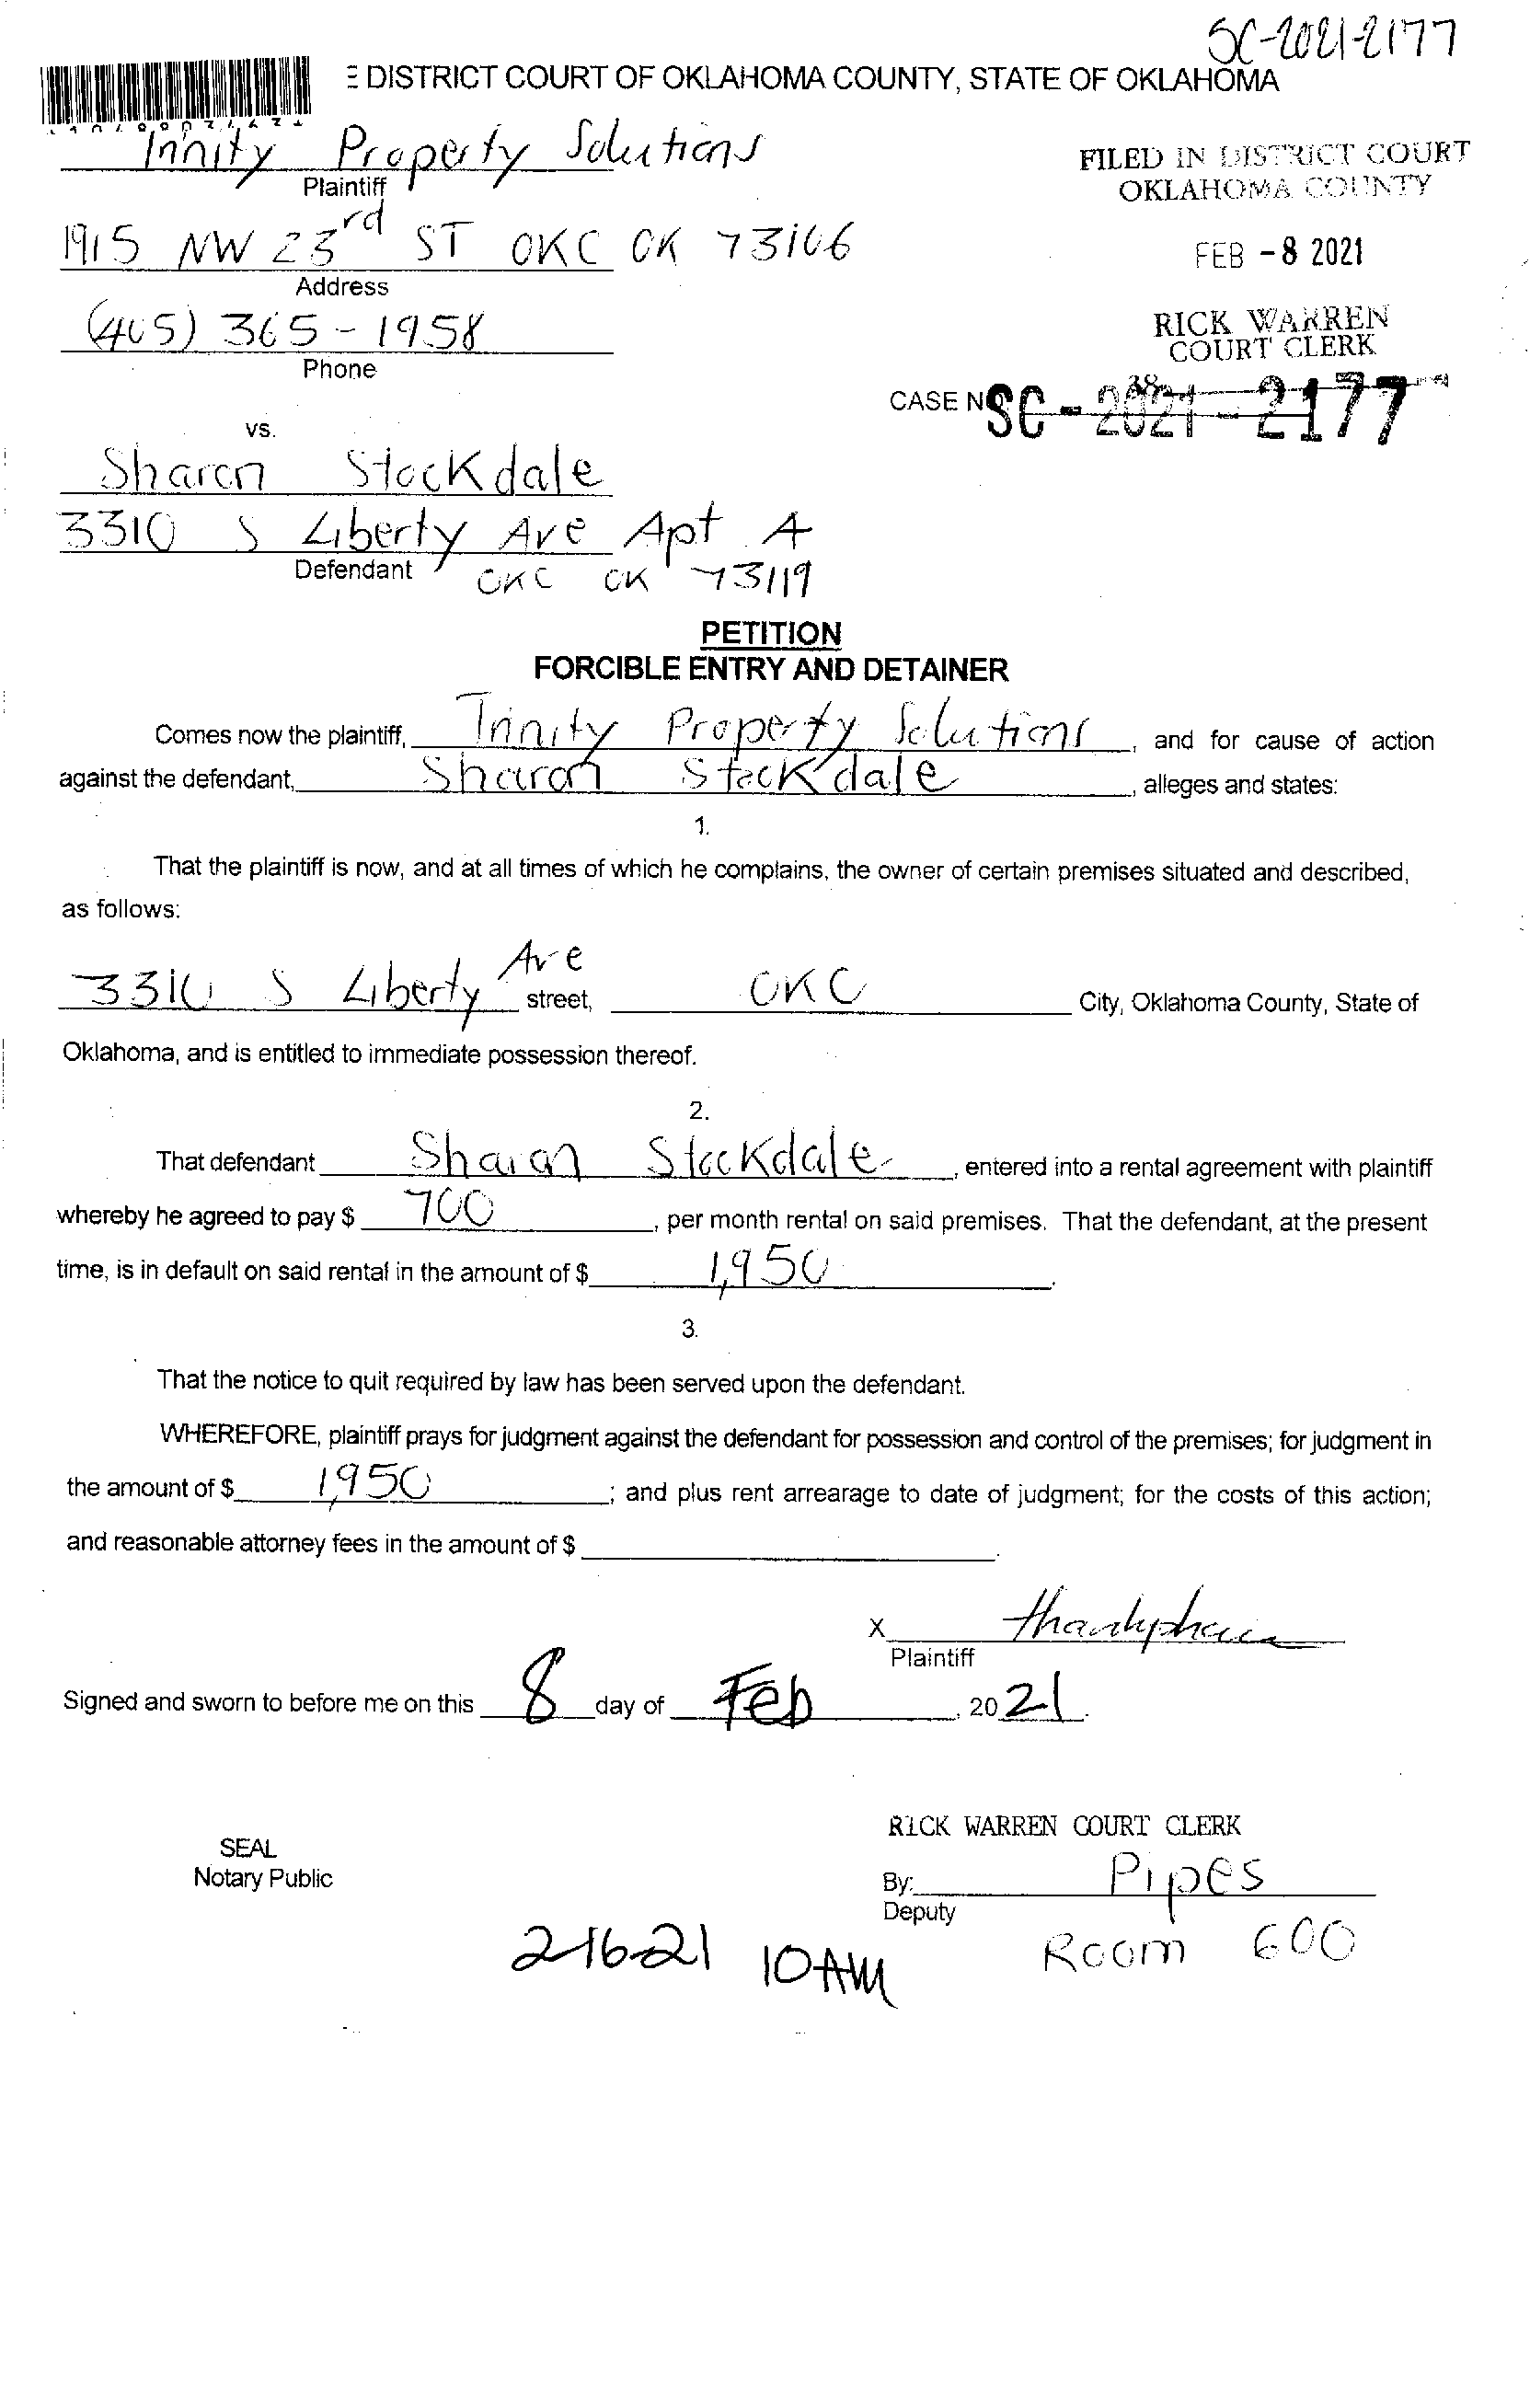 SC-2021-2177
E DISTRICT COURT OF OKLAHOMA COUNTY, STATE OF OKLAHOMA
Trinity Property Solutions
Plaintiff
FILED IN DISTRICT COURT
OKLAHOMA COUNTY
1915 NW 23rd ST OKC OK 73106
Address
FEB -8 2021
(405) 365-1958
Phone
RICK WARREN
COURT CLERK
38
CASE NO. SC-2021-2177
vs.
Sharon Stockdale
3310 S Liberty Ave Apt A
Defendant OKC OK 73119
PETITION
FORCIBLE ENTRY AND DETAINER
Comes now the plaintiff, Trinity Property Solutions, and for cause of action
against the defendant, Sharon Stockdale, alleges and states:
1.
That the plaintiff is now, and at all times of which he complains, the owner of certain premises situated and described,
as follows:
3310 S Liberty Ave street, OKC City, Oklahoma County, State of
Oklahoma, and is entitled to immediate possession thereof.
2.
That defendant Sharon Stockdale, entered into a rental agreement with plaintiff
whereby he agreed to pay $ 700, per month rental on said premises. That the defendant, at the present
time, is in default on said rental in the amount of $ 1,950.
3.
That the notice to quit required by law has been served upon the defendant.
WHEREFORE, plaintiff prays for judgment against the defendant for possession and control of the premises; for judgment in
the amount of $ 1,950; and plus rent arrearage to date of judgment; for the costs of this action;
and reasonable attorney fees in the amount of $ .
X
Plaintiff
Signed and sworn to before me on this 8 day of Feb, 2021.
RICK WARREN COURT CLERK
SEAL
Notary Public
By: Pipes
Deputy
2-16-21 10AM Room 600